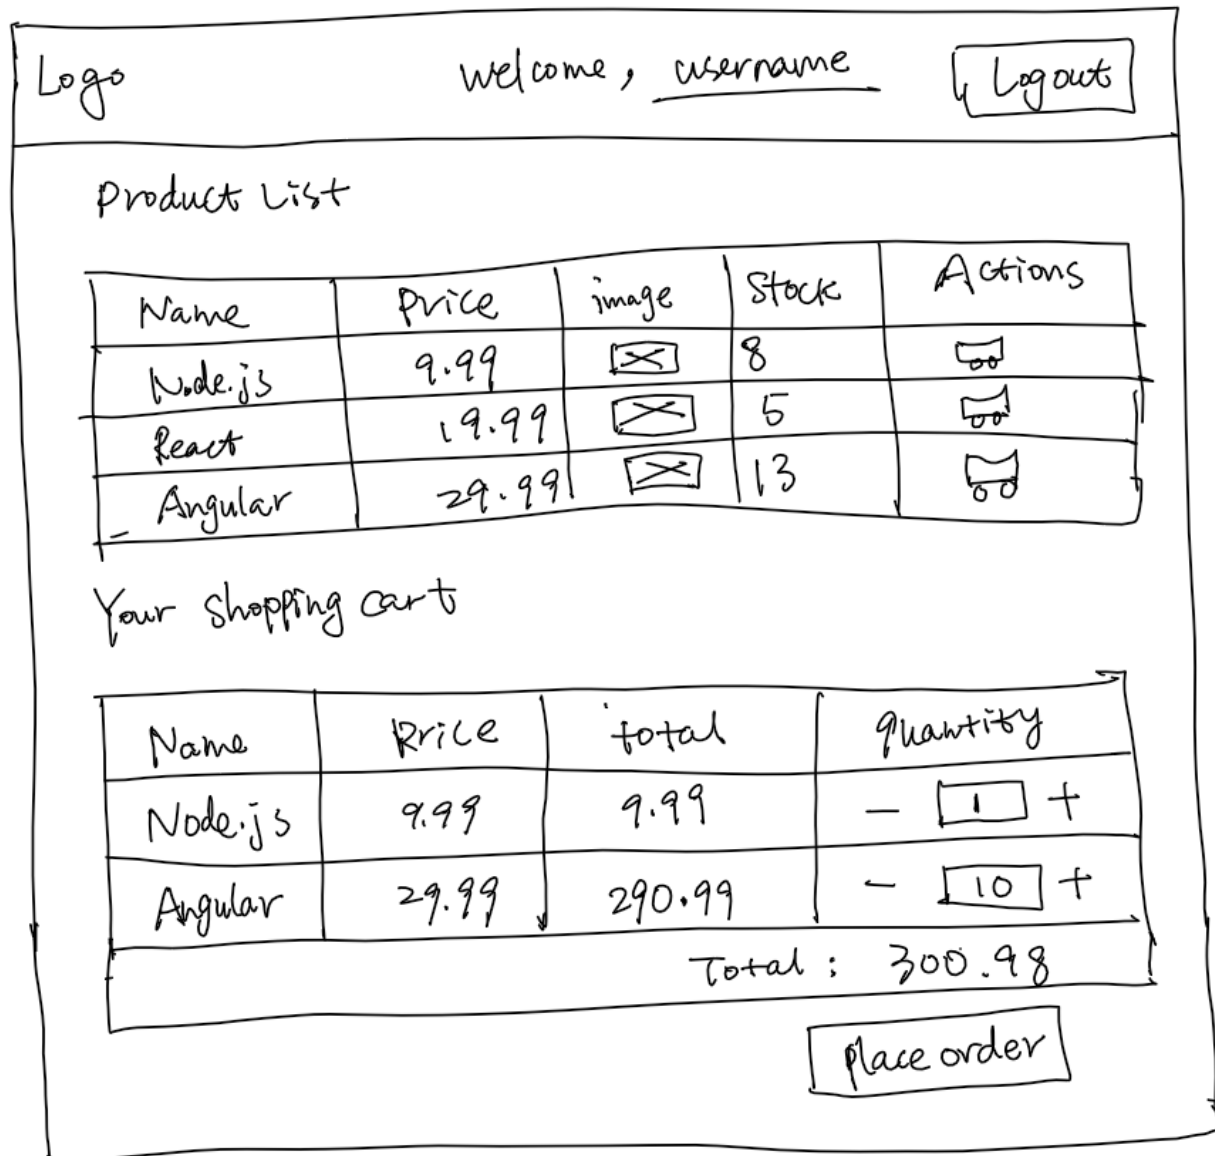 Logo welcome, username Logout
Product List
Name Price image Stock Actions
Node.js 9.99 8
React 19.99 5
Angular 29.99 13
Your shopping cart
Name Price total quantity
Node.js 9.99 9.99 - 1 +
Angular 29.99 290.99 - 10 +
Total: 300.98
place order